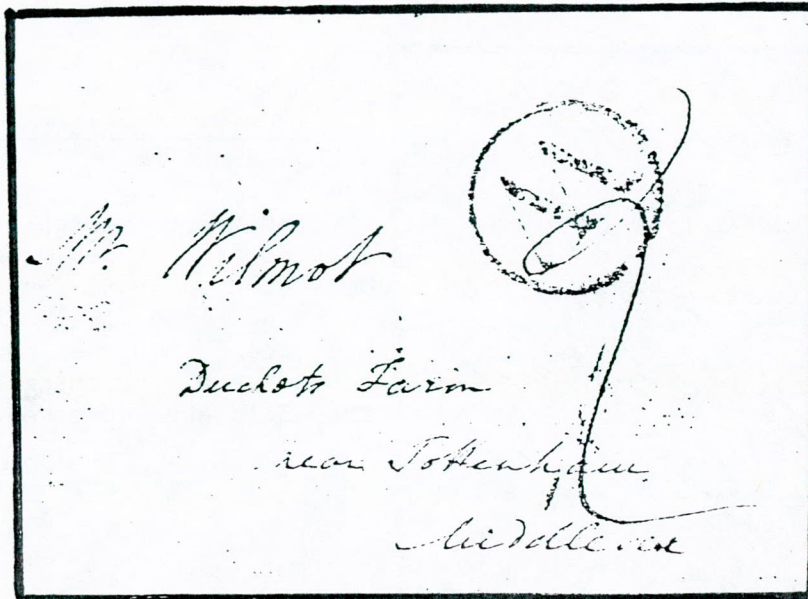 Mr. Wilmot
Farm
near Tottenham
Middlesex